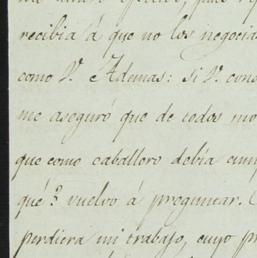 recibia á que no los negocia
como V. Ademas: si V. cons
me aseguró que de todos mo
que como caballero debía cum
qué? vuelvo á preguntar.
perdiera mi trabajo, cuyo pr